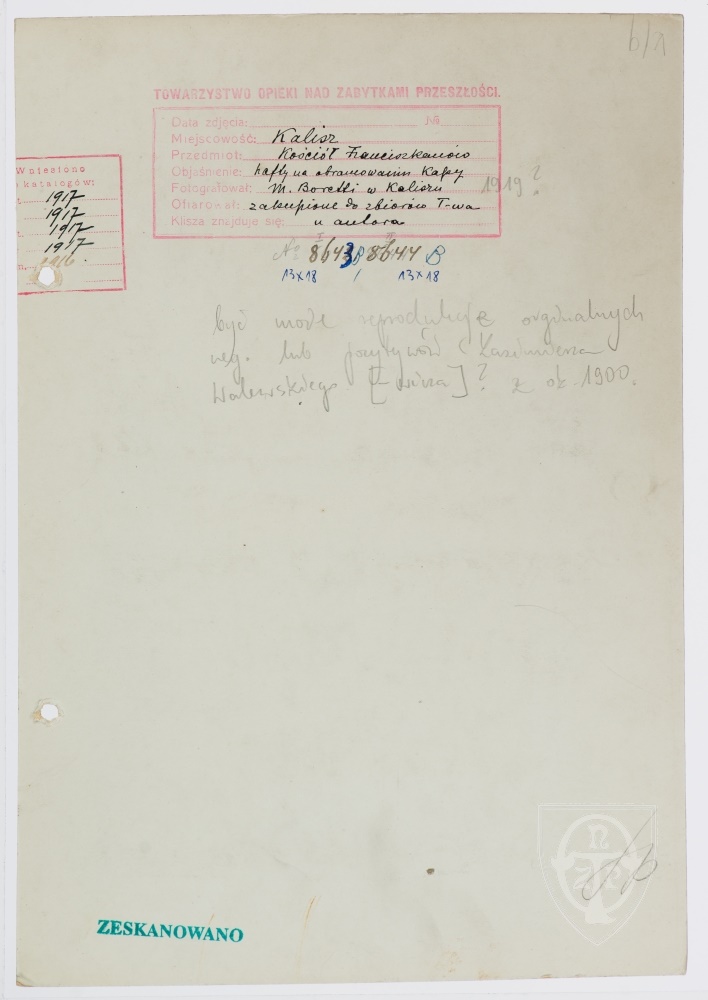 b/1
TOWARZYSTWO OPIEKI NAD ZABYTKAMI PRZESZŁOŚCI.
Data zdjęcia: №
Miejscowość: Kalisz
Przedmiot: Kościół Franciszkanów
Objaśnienie: hafty na obramowaniu Kapy
Fotografował: M. Boretti w Kaliszu 1919?
Ofiarował: zakupione do zbiorów T-wa
Klisza znajduje się: u autora
Wniesiono
katalogów:
1917
1917
1917
1917
1916.
№ 8643 B, 8644 B
13x18 13x18
być może reprodukcje orginalnych
neg. lub pozytywów Kazimierza
Walewskiego ? z ok. 1900.
ZESKANOWANO